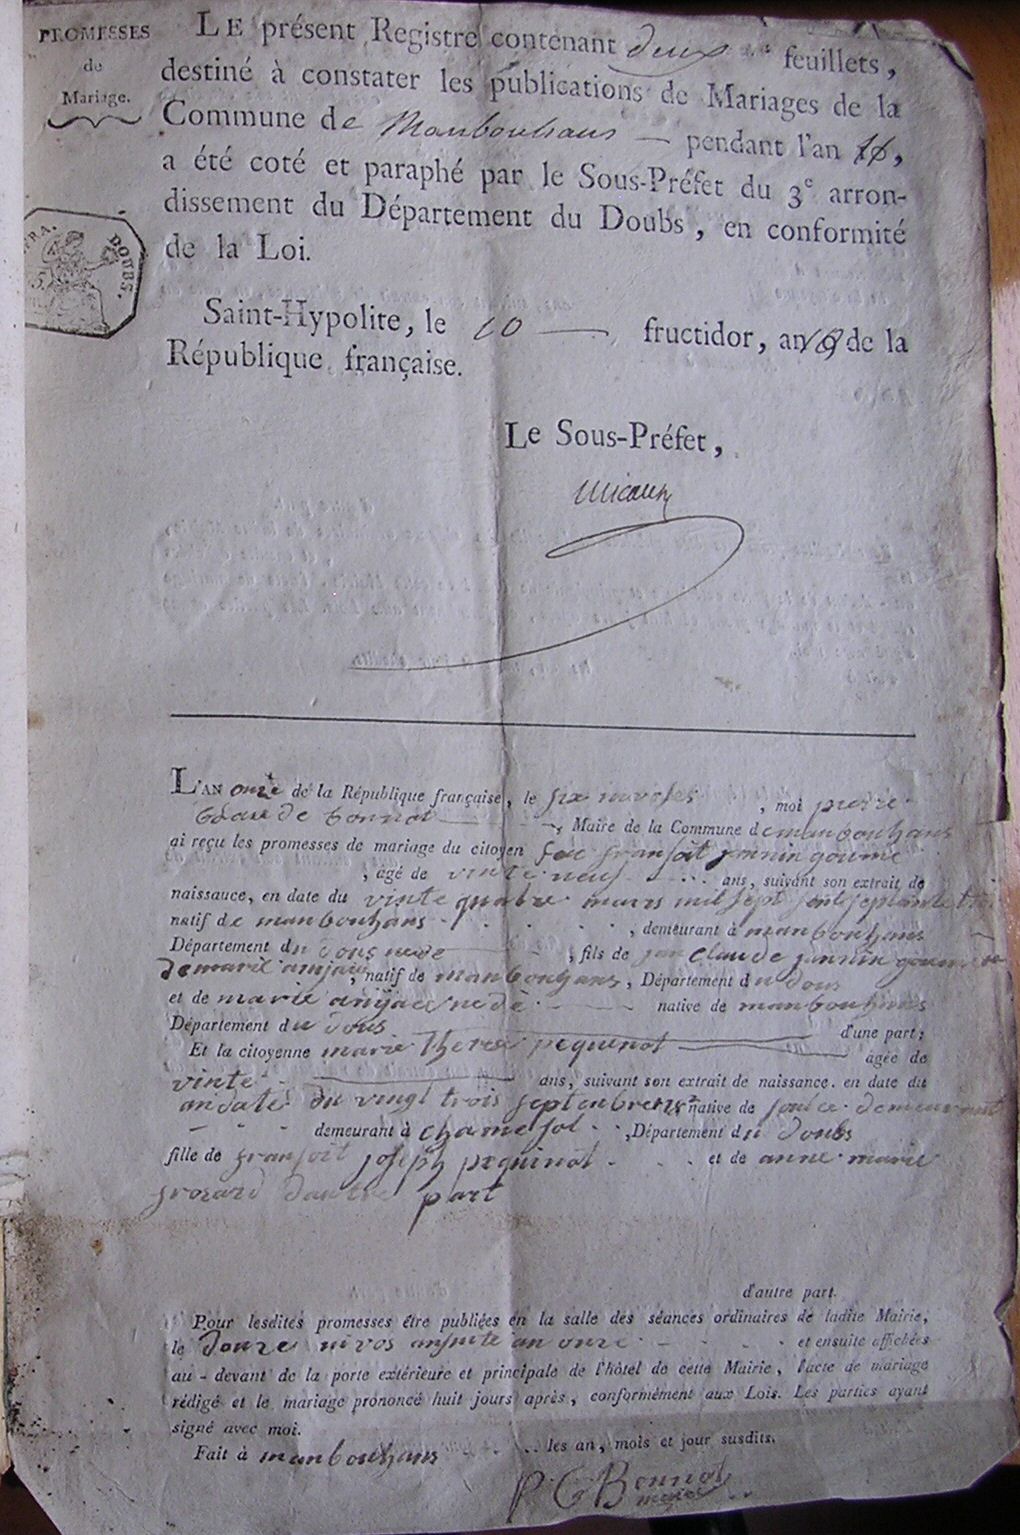 PROMESSES
de
Mariage.
LE présent Registre contenant deux feuillets,
destiné à constater les publications de Mariages de la
Commune de Manbouhans — pendant l'an 11,
a été coté et paraphé par le Sous-Préfet du 3e arron-
dissement du Département du Doubs, en conformité
de la Loi.
FRA.
DOUBS.
Saint-Hypolite, le 10 — fructidor, an 10 de la
République française.
Le Sous-Préfet,
Micaud
L'AN onze de la République française, le six nivoses, moi pierre
Claude bonnot, Maire de la Commune de manbouhans
ai reçu les promesses de mariage du citoyen fransoit jannin goume
, agé de vinte neuf ans, suivant son extrait de
naissance, en date du vinte quatre mars mil sept sent septante troi
natif de manbouhans, demeurant à manbouhans
Département du dous, fils de jan Claude jannin goume
de marie, natif de manbouhans, Département du dous
et de marie native de manbouhans
Département du dous d'une part;
Et la citoyenne marie therese pequinot agée de
vinte ans, suivant son extrait de naissance. en date du
du vingt trois septenbre native de
demeurant à chamesol, Département du doubs
fille de fransoit joseph pequinot et de anne marie
frosard dautre part
d'autre part.
Pour lesdites promesses être publiées en la salle des séances ordinaires de ladite Mairie,
le douze nivos ansuite an onze et ensuite affichées
au-devant de la porte extérieure et principale de l'hôtel de cette Mairie, l'acte de mariage
rédigé et le mariage prononcé huit jours après, conformément aux Lois. Les parties ayant
signé avec moi.
Fait à manbouhans les an, mois et jour susdits.
P. C. Bonnot
maire